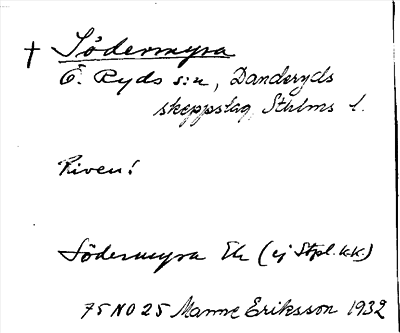 † Södermyra
Ö. Ryds s:n, Danderyds
skeppslag, Sthlms l.
Riven!
Södermyra Ek (ej Stpl. k.k.)
75 NO 25 Manne Eriksson 1932